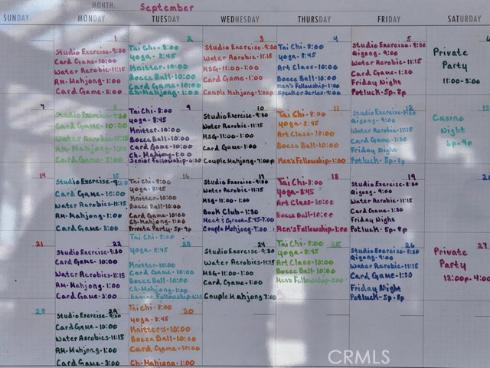 MONTH September
SUNDAY MONDAY TUESDAY WEDNESDAY THURSDAY FRIDAY SATURDAY
1
Studio Exercise-9:30
Card Game-10:00
Water Aerobics-11:15
AM-Mahjong-1:00
Card Game-3:00
2
Tai Chi-8:00
Yoga-8:45
Knitter-10:00
Bocce Ball-10:00
Card Game-10:00
Ch-Mahjong-1:00
3
Studio Exercise-9:30
Water Aerobic-11:15
MSG-11:00-1:00
Card Game-1:00
Couple Mahjong-7:00p
4
Tai Chi-8:00
Yoga-8:45
Art Class-10:00
Bocce Ball-10:00
Men's Fellowship-1:00
5
Studio Exercise-9:30
Qigong-9:30
Water Aerobic-11:15
Card Game-1:30
Friday Night
Potluck-5p-8p
Private
Party
11:00-5:00
7
8
Card Game-10:00
Water Aerobic-11:15
AM-Mahjong-1:00
Card Game-3:00
9
Tai Chi-8:00
Yoga-8:45
Knitter-10:00
Bocce Ball-10:00
Card Game-10:00
Ch-Mahjong-1:00
10
Studio Exercise-9:30
Water Aerobic-11:15
MSG-11:00-1:00
Card Game-1:00
Couple Mahjong-7:00p
11
Tai Chi-8:00
Yoga-8:45
Art Class-10:00
Bocce Ball-10:00
Men's Fellowship-1:00
12
Studio Exercise-9:30
Qigong-9:30
Water Aerobic-11:15
Card Game-1:30
Friday Night
Potluck-5p-8p
Casino
Night
5p-9p
14
15
Studio Exercise-9:30
Card Game-10:00
Water Aerobics-11:15
AM-Mahjong-1:00
Card Game-3:00
16
Tai Chi-8:00
Yoga-8:45
Knitter-10:00
Bocce Ball-10:00
Card Game-10:00
Ch-Mahjong-1:00
Private Party-5p-9p
17
Studio Exercise-9:30
Water Aerobic-11:15
Book Club-1:30
Couple Mahjong-7:00
18
Tai Chi-8:00
Yoga-8:45
Art Class-10:00
Bocce Ball-10:00
Men's Fellowship-1:00
19
Studio Exercise-9:30
Qigong-9:30
Water Aerobic-11:15
Card Game-1:30
Friday Night
Potluck-5p-8p
21
22
Studio Exercise-9:30
Card Game-10:00
Water Aerobics-11:15
AM-Mahjong-1:00
Card Game-3:00
23
Tai Chi-8:00
Yoga-8:45
Knitter-10:00
Card Game-10:00
Bocce Ball-10:00
Ch-Mahjong-1:00
24
Studio Exercise-9:30
Water Aerobic-11:15
MSG-11:00-1:00
Card Game-1:00
Couple Mahjong-7:00
25
Tai Chi-8:00
Yoga-8:45
Art Class-10:00
Bocce Ball-10:00
Men's Fellowship-1:00
26
Studio Exercise-9:30
Qigong-9:30
Water Aerobic-11:15
Card Game-1:30
Friday Night
Potluck-5p-8p
27
Private
Party
12:00p-4:00
28
29
Studio Exercise-9:30
Card Game-10:00
Water Aerobics-11:15
AM-Mahjong-1:00
Card Game-3:00
30
Tai Chi-8:00
Yoga-8:45
Knitters-10:00
Bocce Ball-10:00
Card Game-10:00
Ch-Mahjong-1:00
CRMLS